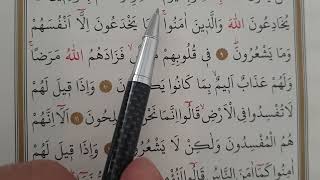 يُخَادِعُونَ اللّٰهَ وَالَّذٖينَ اٰمَنُواۚ يَخْدَعُونَ اِلَّٓا اَنْفُسَهُمْ
وَمَا يَشْعُرُونَۜ ﴿٩﴾ فٖي قُلُوبِهِمْ فَزَادَهُمُ اللّٰهُ مَرَضًاۚ
وَلَهُمْ عَذَابٌ اَلٖيمٌ بِمَا كَانُوا ﴿١٠﴾ وَاِذَا قٖيلَ لَهُمْ
لَا تُفْسِدُوا فِي الْاَرْضِۙ قَالُٓوا اِنَّمَا نَحْنُ ﴿١١﴾ اَلَٓا
هُمُ الْمُفْسِدُونَ وَلٰكِنْ لَا يَشْعُرُونَ وَاِذَا قٖيلَ لَهُمْ
اٰمِنُوا كَمَٓا اٰمَنَ النَّاسُ قَالُٓوا